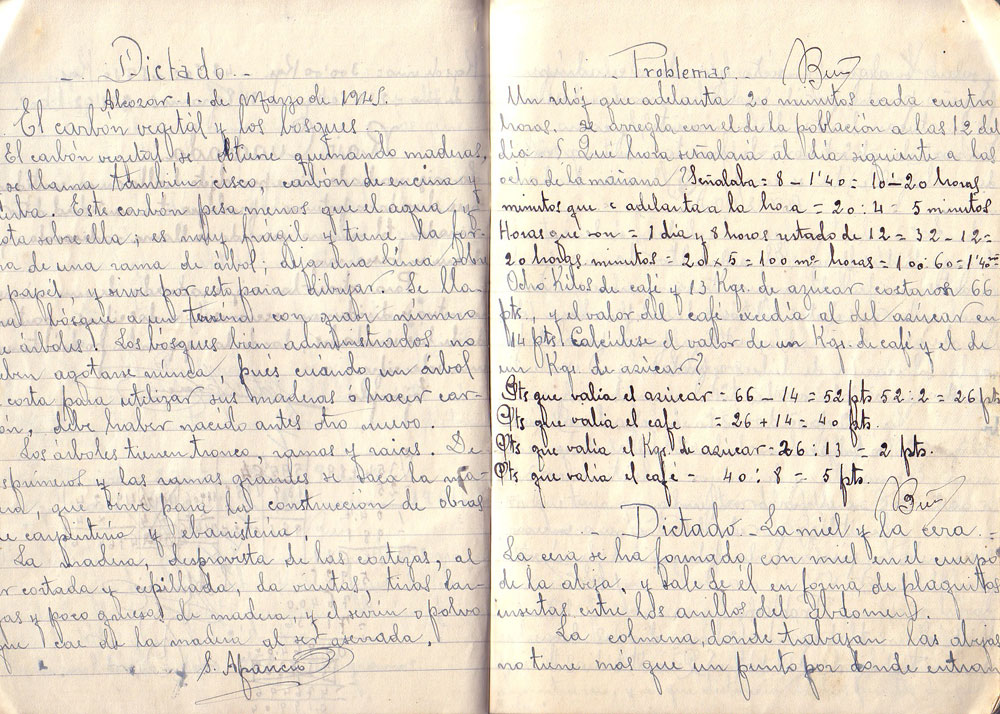 - Dictado. -
Alcozar. 1. de Marzo de 1945.
El carbón vegetál y los bosques
El carbón vegetal se obtiene quemando maderas.
se llama también cisco, carbón de encina y
Este carbón pesa menos que el agua, y
ota sobre ella; es muy frágil y tiene la for-
ma de una rama de árbol; deja una línea sobre
papél y sirve por esto para dibujar. Se lla-
bósque a un terreno con gran número
e árboles. Los bósques bien administrados no
ben agotarse núnca, pués cuándo un árbol
corta para utilizar sus maderas ó hacer car-
ón, debe haber nacido antes otro nuevo.
Los árboles tienen tronco, ramas y raices. De
s primeros y las ramas grandes se saca la ma-
ra, que sirve para la construcción de obras
e carpintería y ebanistería.
La madera, desprovista de las cortezas, al
r cortada y cepillada, da virutas, tiras lar-
gas y poco gruesas de madera, y el serrín o polvo
que cae de la madera al ser aserrada.
S. Aparicio
- Problemas. - Bien
Un relój que adelanta 20 minutos cada cuatro
horas. se arregla con el de la población a las 12 del
día. ¿Qué hora señalará al día siguiente a las
ocho de la mañana? Señalaba = 8 - 1'40 = 10 - 20 horas
minutos que adelanta a la hora = 20 : 4 = 5 minutos
Horas que son = 1 dia y 8 horas restado de 12 = 32 - 12 =
20 horas minutos = 20 x 5 = 100 m. horas = 100 : 60 = 1'40
Ocho Kilos de café y 13 Kgs. de azucar costaron 66
pts, y el valor del café excedía al del azucar en
14 pts. Calcúlese el valor de un Kgs. de café y el de
un Kgs. de azúcar?
Pts que valía el azúcar = 66 - 14 = 52 pts 52 : 2 = 26 pts
Pts que valía el cafe = 26 + 14 = 40 pts.
Pts que valía el Kgs. de azucar = 26 : 13 = 2 pts.
Pts que valía el café = 40 : 8 = 5 pts.
Bien
Dictado. - La miel y la cera. -
La cera se ha formado con miel en el cuerpo
de la abeja, y sale de el en forma de plaquitas
insertas entre los anillos del abdomen.
La colmena, donde trabajan las abejas
no tiene más que un punto por donde entran